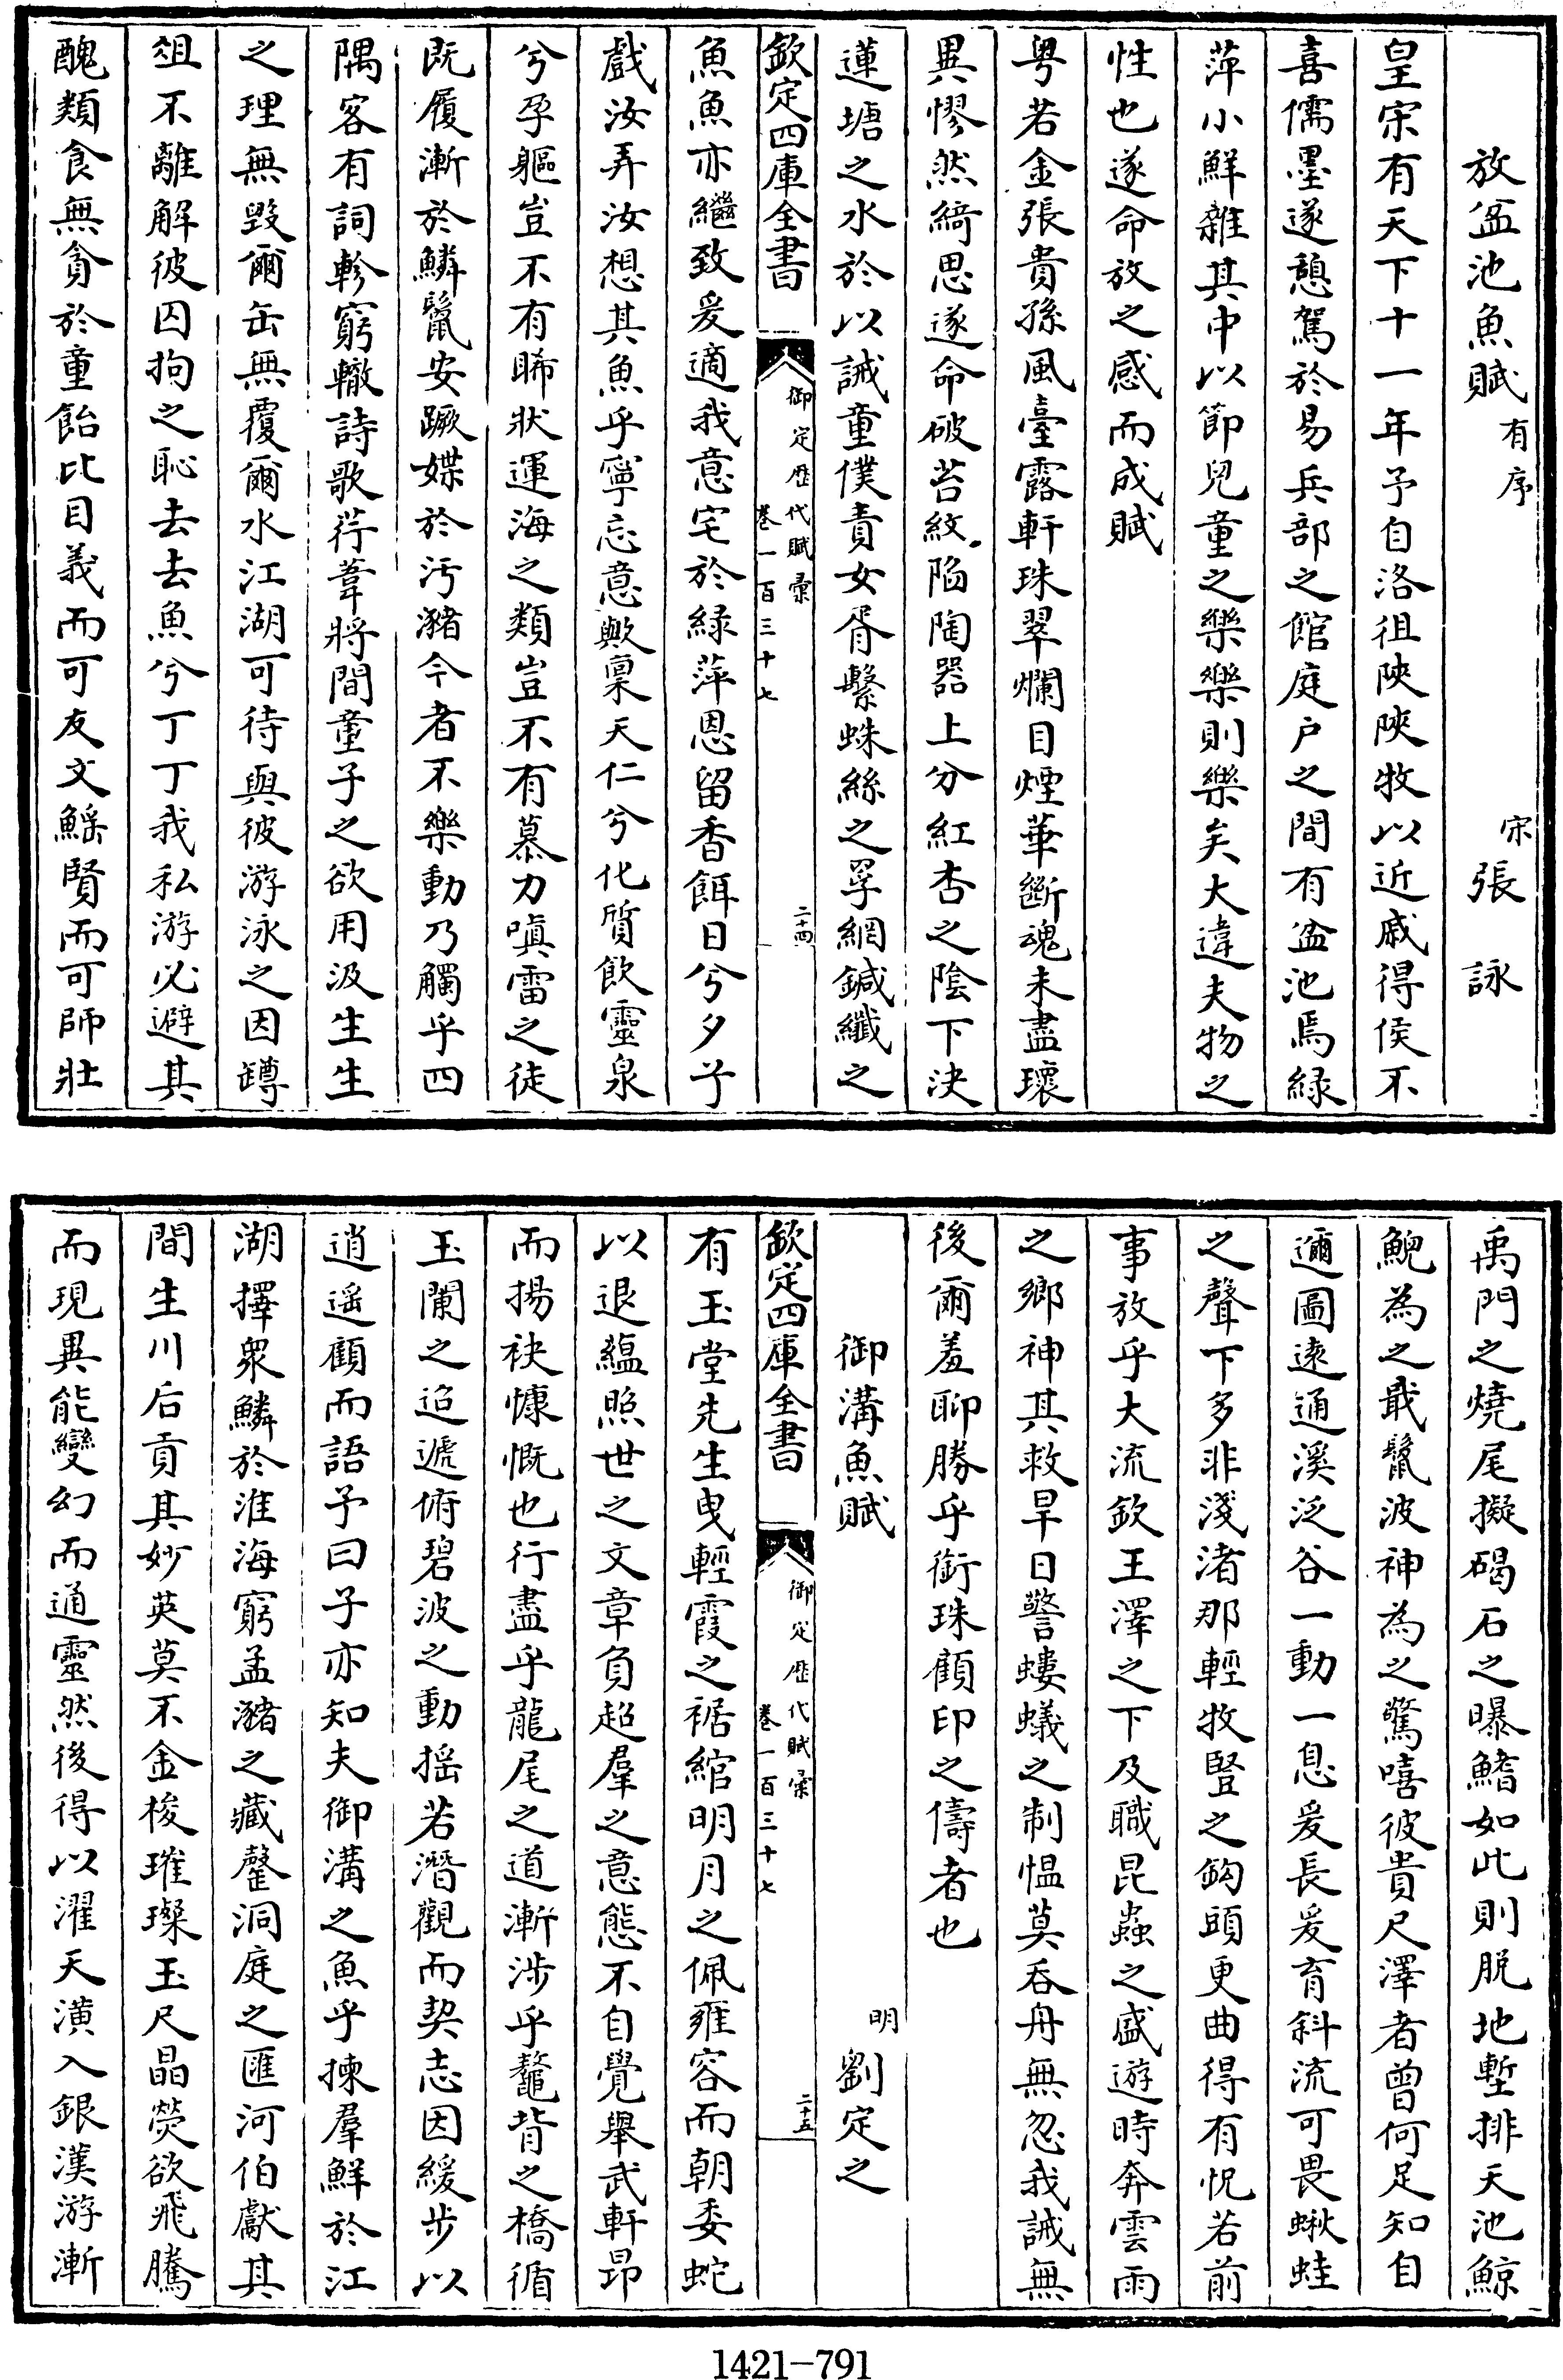 放盆池魚賦有序　宋張詠
皇宋有天下十一年予自洛徂陜陜牧以近戚得侯不
喜儒墨遂憩駕於易兵部之館庭户之間有盆池焉緑
萍小鮮雜其中以節兒童之樂樂則樂矣大違夫物之
性也遂命放之感而成賦
粤若金張貴孫風臺露軒珠翠爛目煙華斷魂未盡瓌
異憀然綺思遂命破苔紋陷陶器上分紅杏之陰下決
蓮塘之水於以誡童僕責女胥繫蛛絲之罦網鍼纖之
欽定四庫全書　御定歴代賦彙　卷一百三十七　二十四
魚魚亦繼致爰適我意宅於緑萍恩留香餌日兮夕兮
戲汝弄汝想其魚乎寧忘意歟稟天仁兮化質飲靈泉
兮孕軀豈不有睎狀運海之類豈不有慕力嗔雷之徒
既履漸於鱗鬛安蹶媟於汚瀦今者不樂動乃觸乎四
隅客有詞軫窮轍詩歌荇葦將間童子之欲用汲生生
之理無毁爾缶無覆爾水江湖可待與彼游泳之因罇
俎不離解彼囚拘之恥去去魚兮丁丁我私游必避其
醜類食無貪於童飴比目義而可友文鰩賢而可師壯
禹門之燒尾擬碣石之曝鰭如此則脱地塹排天池鯨
鯢為之戢鬛波神為之驚嘻彼貴尺澤者曾何足知自
邇圖逺通溪泛谷一動一息爰長爰育斜流可畏蝌蛙
之聲下多非淺渚那輕牧豎之鈎頭更曲得有怳若前
事放乎大流欽王澤之下及職昆蟲之盛遊時奔雲雨
之鄉神其救旱日警螻蟻之制愠莫呑舟無忽我誡無
後爾羞聊勝乎銜珠顧印之儔者也
御溝魚賦　明劉定之
欽定四庫全書　御定歴代賦彙　卷一百三十七　二十五
有玉堂先生曳輕霞之裾綰明月之佩雍容而朝委蛇
以退藴照世之文章負超羣之意態不自覺舉武軒昻
而揚袂慷慨也行盡乎龍尾之道漸涉乎鼇背之橋循
玉闌之迢遞俯碧波之動揺若潛觀而契志因緩步以
逍遥顧而語予曰子亦知夫御溝之魚乎揀羣鮮於江
湖擇衆鱗於淮海窮孟瀦之藏罄洞庭之匯河伯獻其
間生川后貢其妙英莫不金梭璀璨玉尺晶熒欲飛騰
而現異能變幻而通靈然後得以濯天潢入銀漢游漸
1421-791